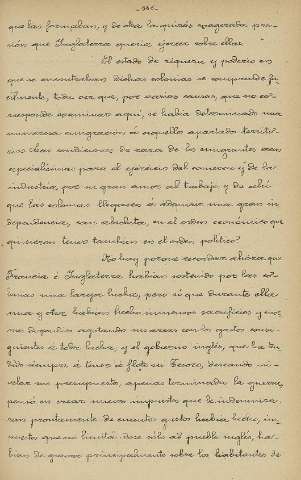 que las formaban, y de otra la quizás exagerada pre-
sión que Inglaterra quería ejercer sobre ellas.
El estado de riqueza y poderío en
que se encontraban dichas colonias se comprende fá-
cilmente, toda vez que, por varias causas, que no co-
rresponde examinar aquí, se había determinado una
numerosa emigración á aquellos apartados territo-
rios. Las condiciones de raza de los emigrantes eran
especialísimas para el ejercicio del comercio y de la
industria, por su gran amor al trabajo, y de ahí
que las colonias llegasen á alcanzar una gran in-
dependencia, casi absoluta, en el orden económico que
quisieran tener tambien en el orden político.
No hay porque recordar ahora que
Francia é Inglaterra habían sostenido por las co-
lonias una larga lucha, pero si que durante ella
una y otra habían hecho inmensos sacrificios y
de quedar agotando sus arcas con los gastos consi-
guientes á toda lucha, y el gobierno inglés, que ha te-
nido siempre á tener á flote su Tesoro, deseando ni-
velar su presupuesto, apenas terminada la guerra,
pensó en crear nuevos impuestos que le indemniza-
sen prontamente de cuantos gastos había hecho, im-
puestos que no limitándose sólo al pueblo inglés, ha-
bían de gravar principalmente sobre los habitantes de